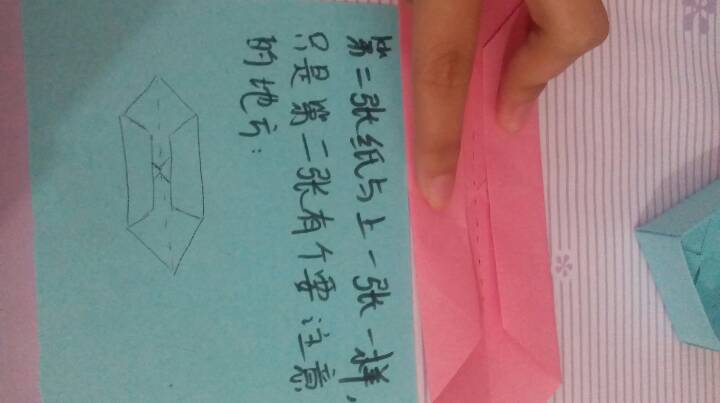 第二张纸与上一张一样，
只是第二张有个要注意
的地方：